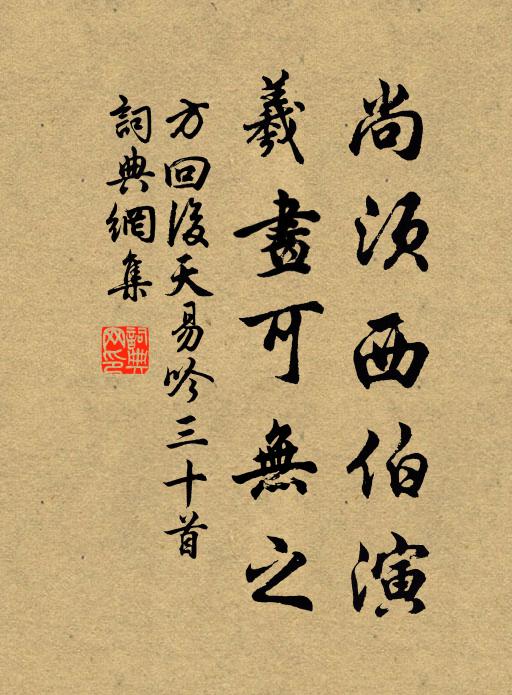 尚須西伯演
羲畫可無之
方回後天易吟三十首
詞典網集
詞典网印